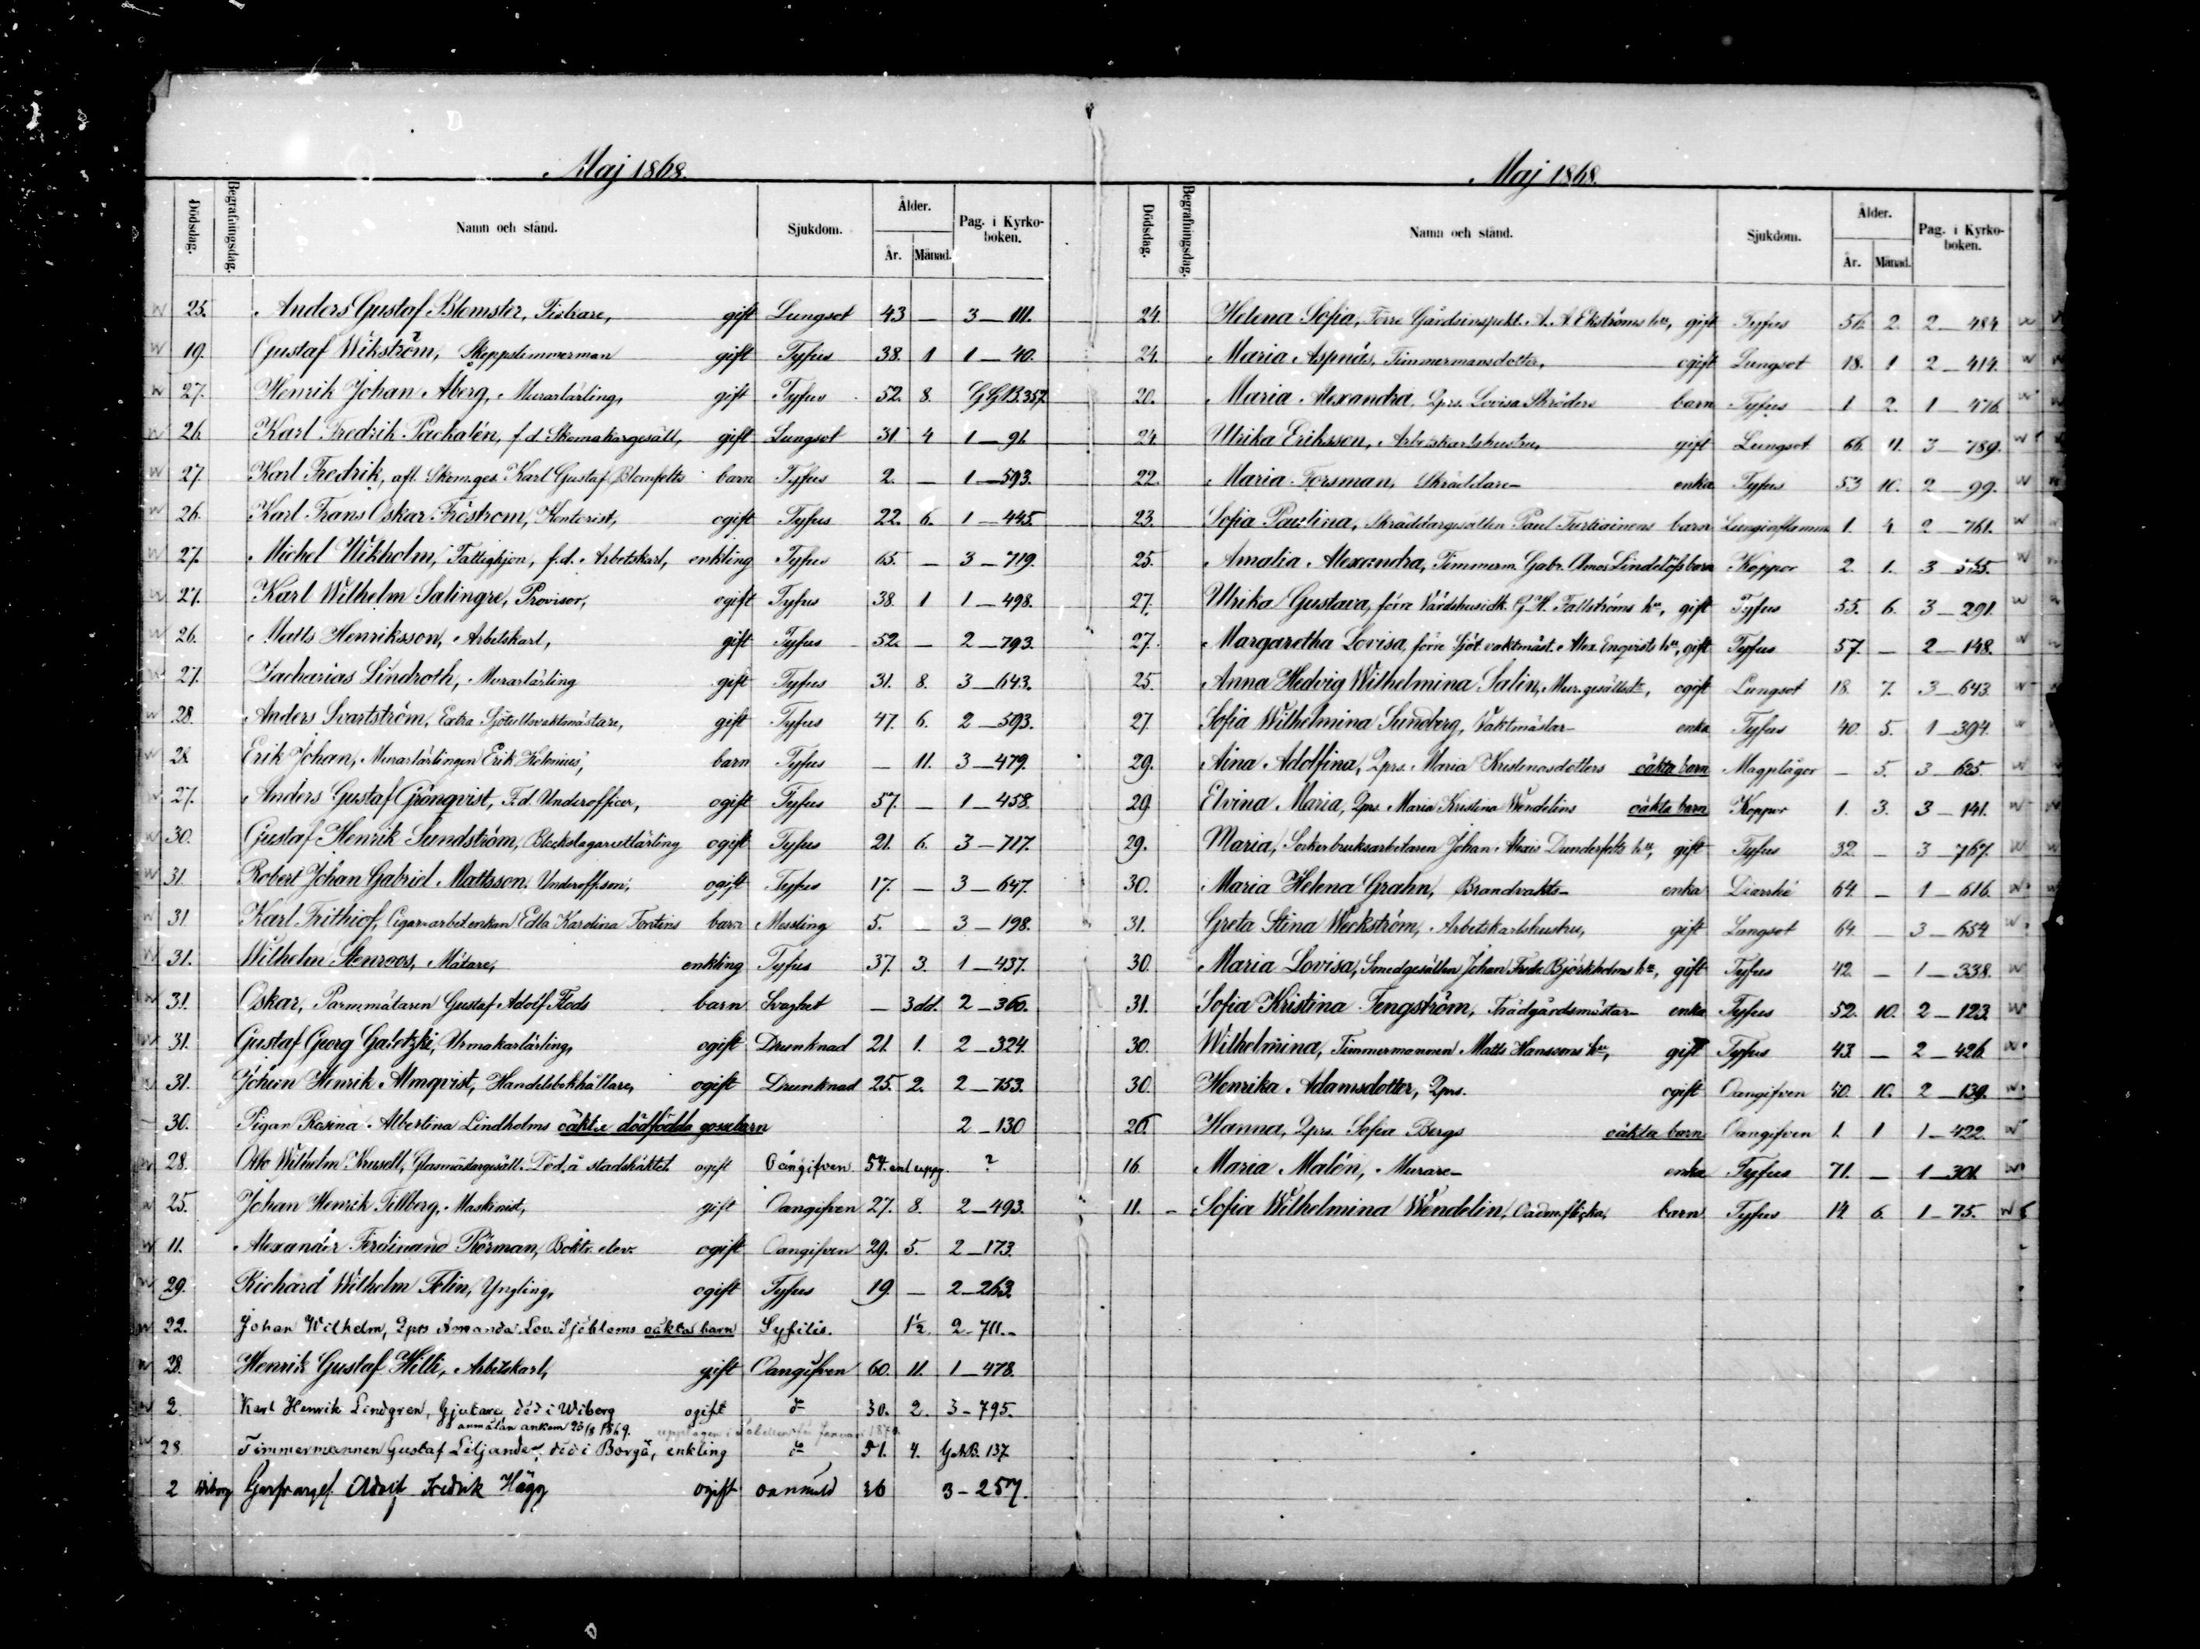 Maj 1868.
Dödsdag. Begrafningsdag. Namn och stånd. Sjukdom. Ålder. År. Månad. Pag. i Kyrko-boken.
25. Anders Gustaf Blomster, Fiskare, gift Lungsot 43 — 3 — 111.
19. Gustaf Wikström, Skeppstimmerman gift Tyfus 38. 1 1 — 40.
27. Henrik Johan Åberg, Murarlärling, gift Tyfus 52. 8. G G B. 357.
26 Karl Fredrik Pachalén, f.d. Skomakargesäll, gift Lungsot 31 4 1 — 91.
27. Karl Fredrik, afl. Skom.ges. Karl Gustaf Blomfelts barn Tyfus 2. — 1 — 593.
26. Karl Frans Oskar Fröström, Kontorist, ogift Tyfus 22. 6. 1 — 445.
27. Michel Wikholm, Fattighjon, f.d. Arbetskarl, enkling Tyfus 65. — 3 — 719.
27. Karl Wilhelm Salingre, Provisor, ogift Tyfus 38. 1 1 — 498.
26. Matts Henriksson, Arbetskarl, gift Tyfus 52. — 2 — 793.
27. Zacharias Lindroth, Murarlärling gift Tyfus 31. 8. 3 — 643.
28. Anders Svartström, Extra Sjötullvaktmästare, gift Tyfus 47. 6. 2 — 593.
28 Erik Johan, Murarlärlingen Erik Helenius', barn Tyfus — 11. 3 — 479.
27. Anders Gustaf Grönqvist, F.d. Underofficer, ogift Tyfus 57. — 1 — 458.
30. Gustaf Henrik Sundström, Bleckslagarelärling ogift Tyfus 21. 6. 3 — 717.
31. Robert Johan Gabriel Mattsson, Underoff.son, ogift Tyfus 17. — 3 — 647.
31 Karl Frithiof, Cigarrarbet.enkan Edla Karolina barn Messling 5. — 3 — 198.
31. Wilhelm Stenroos, Mätare, enkling Tyfus 37. 3. 1 — 437.
31. Oskar, Parmmätaren Gustaf Adolf Flods barn Svaghet — 3 dd. 2 — 360.
31. Gustaf Georg Galetzki, Urmakarlärling, ogift Drunknad 21. 1. 2 — 324.
31. Johan Henrik Almqvist, Handelsbokhållare, ogift Drunknad 25. 2. 2 — 753.
30. Pigan Rosina Albertina Lindholms oäkta dödfödda gossebarn 2 — 130
28. Otto Wilhelm Krusell, Glasmästargesäll. Död å stadshäktet ogift Oangifven 54. enl uppg. ?
25. Johan Henrik Tillberg, Maskinist, gift Oangifven 27. 8. 2 — 493.
11. Alexander Ferdinand Thörman, Boktr. elev. ogift Oangifven 29. 5. 2 — 173.
29. Richard Wilhelm Felin, Yngling, ogift Tyfus 19. — 2 — 263.
22. Johan Wilhelm, Qprs Amanda Lov. Sjöbloms oäkta barn Syfilis. 1½. 2 — 711.
28. Henrik Gustaf Hilli, Arbetskarl, gift Oangifven 60. 11. 1 — 478.
2 Karl Henrik Lindgren, Gjutare död i Wiborg ogift do 30. 2. 3 — 795.
anmälan ankom 23/3 1869.
28. Timmermannen Gustaf Liljander, död i Borgå, enkling do 51. 4. G.A.B. 137.
2 Wiborg Adolf Fredrik Hägg ogift oanmäld 26 3 — 257.
Maj 1868.
Dödsdag. Begrafningsdag. Namn och stånd. Sjukdom. Ålder. År. Månad. Pag. i Kyrko-boken.
24. Helena Sofia, Förre Gårdsinspekt. A. A. Ekströms hu, gift Tyfus 56. 2. 2 — 484
24. Maria Aspnäs, Timmermansdotter, ogift Lungsot 18. 1 2 — 414.
20. Maria Alexandra, Qprs. Lovisa Skröders barn Tyfus 1 2. 1 — 476.
24 Ulrika Eriksson, Arbetskarlshustru, gift Lungsot 66. 11. 3 — 789.
22. Maria Forsman, Skräddare- enka Tyfus 53 10. 2 — 99.
23. Sofia Paulina, Skräddargesällen Paul Turtiainens barn Lunginflamm. 1. 4. 2 — 761.
25. Amalia Alexandra, Timmerm. Gabr. Amos Lindelöfs barn Koppor 2. 1. 3 — 555.
27. Ulrika Gustava, förre Värdshusidk. G. H. Fallströms hu, gift Tyfus 55. 6. 3 — 291.
27. Margaretha Lovisa, förre Sjöt.vaktmäst. Alex. Enqvists hu, gift Tyfus 57. — 2 — 148.
25. Anna Hedvig Wilhelmina Salin, Mur.gesällsdr, ogift Lungsot 18. 7. 3 — 643
27 Sofia Wilhelmina Sundberg, Vaktmästar- enka Tyfus 40. 5. 1 — 394.
29. Aina Adolfina, Qprs. Maria Kristinasdotters oäkta barn Magplågor — 5. 3 — 625.
29 Elvina Maria, Qprs. Maria Kristina Wendelins oäkta barn Koppor 1. 3. 3 — 141.
29. Maria, Sockerbruksarbetaren Johan Alexis Dunderfelts hu, gift Tyfus 32. — 3 — 767.
30. Maria Helena Grahn, Brandvakts- enka Diarrhé 64. — 1 — 616.
31. Greta Stina Weckström, Arbetskarlshustru, gift Lungsot 64. — 3 — 654
30. Maria Lovisa, Smedgesällen Johan Fredr. Björkholms hu, gift Tyfus 42. — 1 — 338.
31. Sofia Kristina Tengström, Trädgårdsmästar- enka Tyfus 52. 10. 2 — 123.
30. Wilhelmina, Timmermannen Matts Hanssons hu, gift Tyfus 43. — 2 — 426.
30. Henrika Adamsdotter, Qprs. ogift Oangifven 50. 10. 2 — 139.
26. Hanna, Qprs. Sofia Bergs oäkta barn Oangifven 1. 1 1 — 422.
16. Maria Malén, Murare- enka Tyfus 71. — 1 — 301.
11. Sofia Wilhelmina Wendelin, barn Tyfus 14. 6. 1 — 75.